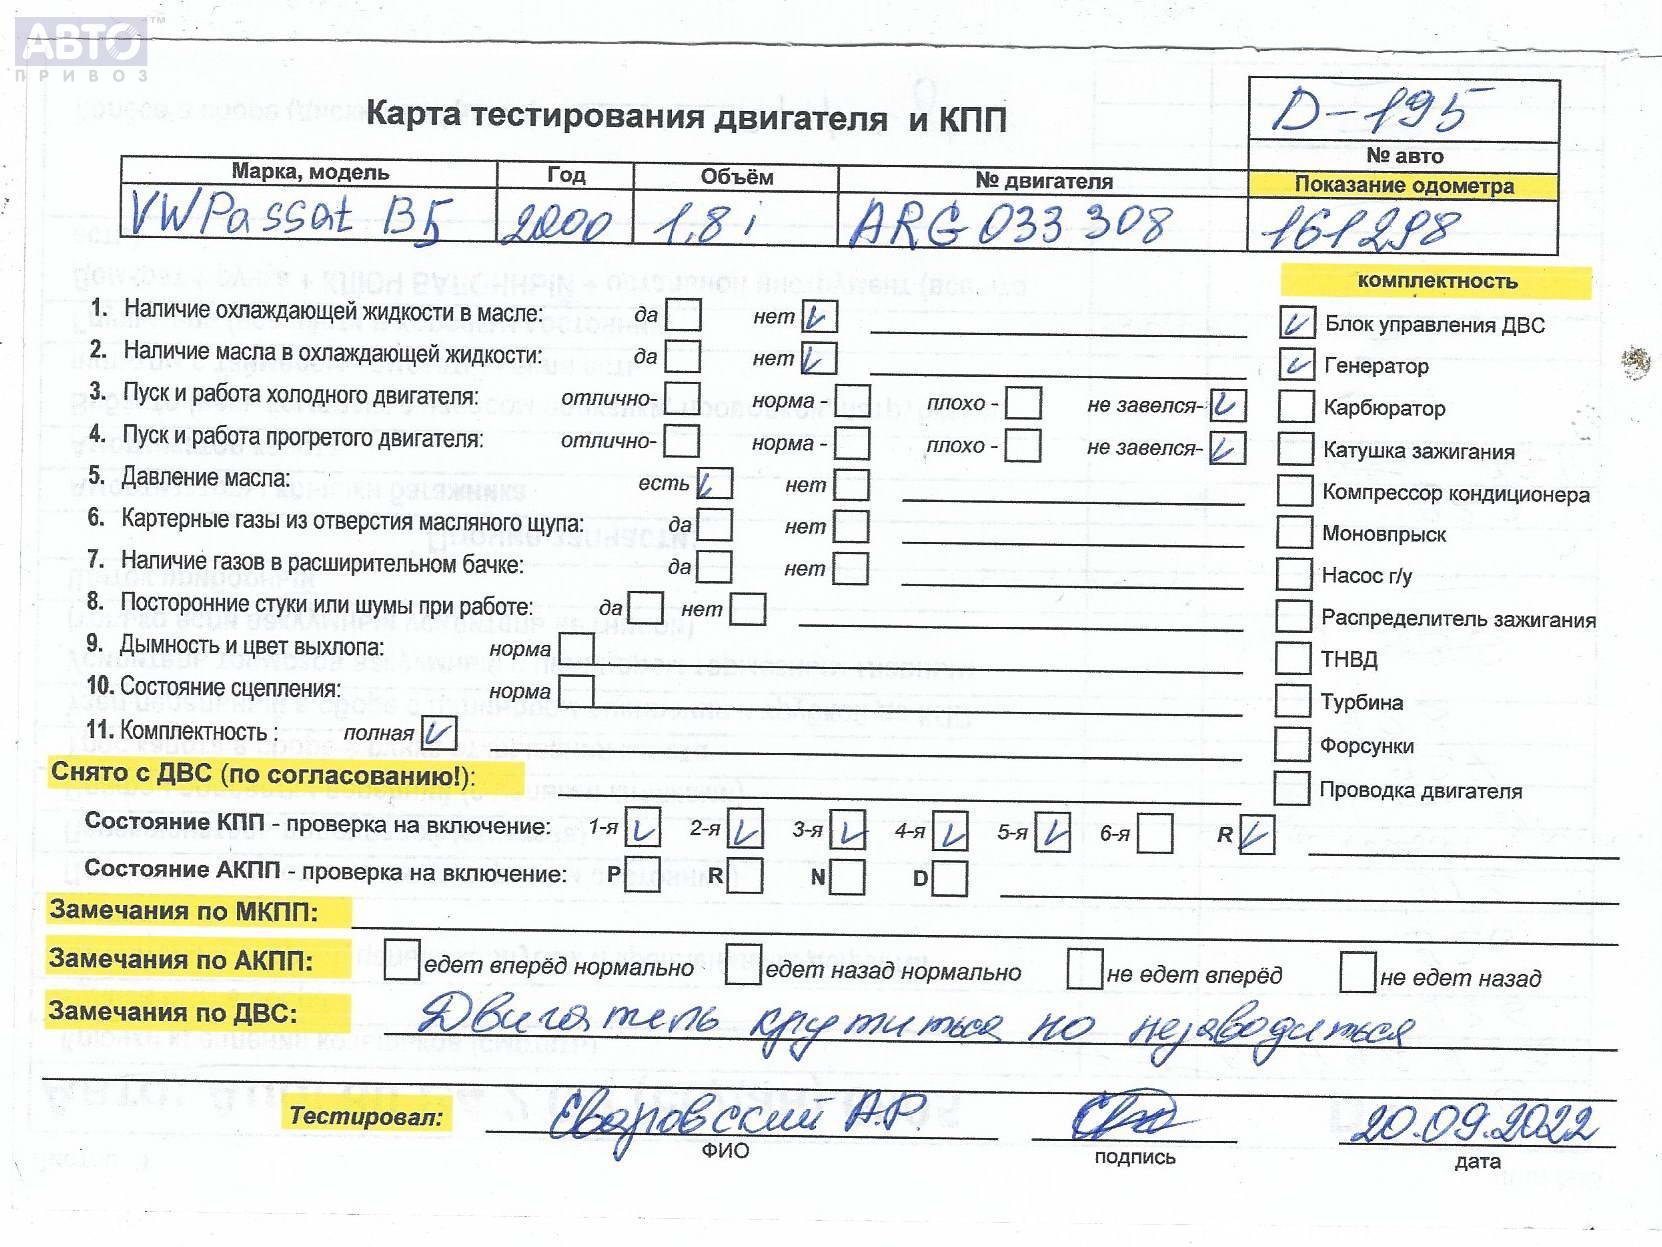 АВТО™
ПРИВОЗ
Карта тестирования двигателя и КПП
D-195
№ авто
Марка, модель Год Объём № двигателя Показание одометра
VW Passat B5 2000 1,8 i ARG 033 308 161298
комплектность
1. Наличие охлаждающей жидкости в масле: да нет V
2. Наличие масла в охлаждающей жидкости: да нет V
3. Пуск и работа холодного двигателя: отлично- норма - плохо - не завелся- V
4. Пуск и работа прогретого двигателя: отлично- норма - плохо - не завелся- V
5. Давление масла: есть V нет
6. Картерные газы из отверстия масляного щупа: да нет
7. Наличие газов в расширительном бачке: да нет
8. Посторонние стуки или шумы при работе: да нет
9. Дымность и цвет выхлопа: норма
10. Состояние сцепления: норма
11. Комплектность : полная V
V Блок управления ДВС
V Генератор
Карбюратор
Катушка зажигания
Компрессор кондиционера
Моновпрыск
Насос г/у
Распределитель зажигания
ТНВД
Турбина
Форсунки
Проводка двигателя
Снято с ДВС (по согласованию!):
Состояние КПП - проверка на включение: 1-я V 2-я V 3-я V 4-я V 5-я V 6-я R V
Состояние АКПП - проверка на включение: P R N D
Замечания по МКПП:
Замечания по АКПП: едет вперёд нормально едет назад нормально не едет вперёд не едет назад
Замечания по ДВС: Двигатель крутиться но незаводиться
Тестировал: Сваровский А.Р. 20.09.2022
ФИО подпись дата